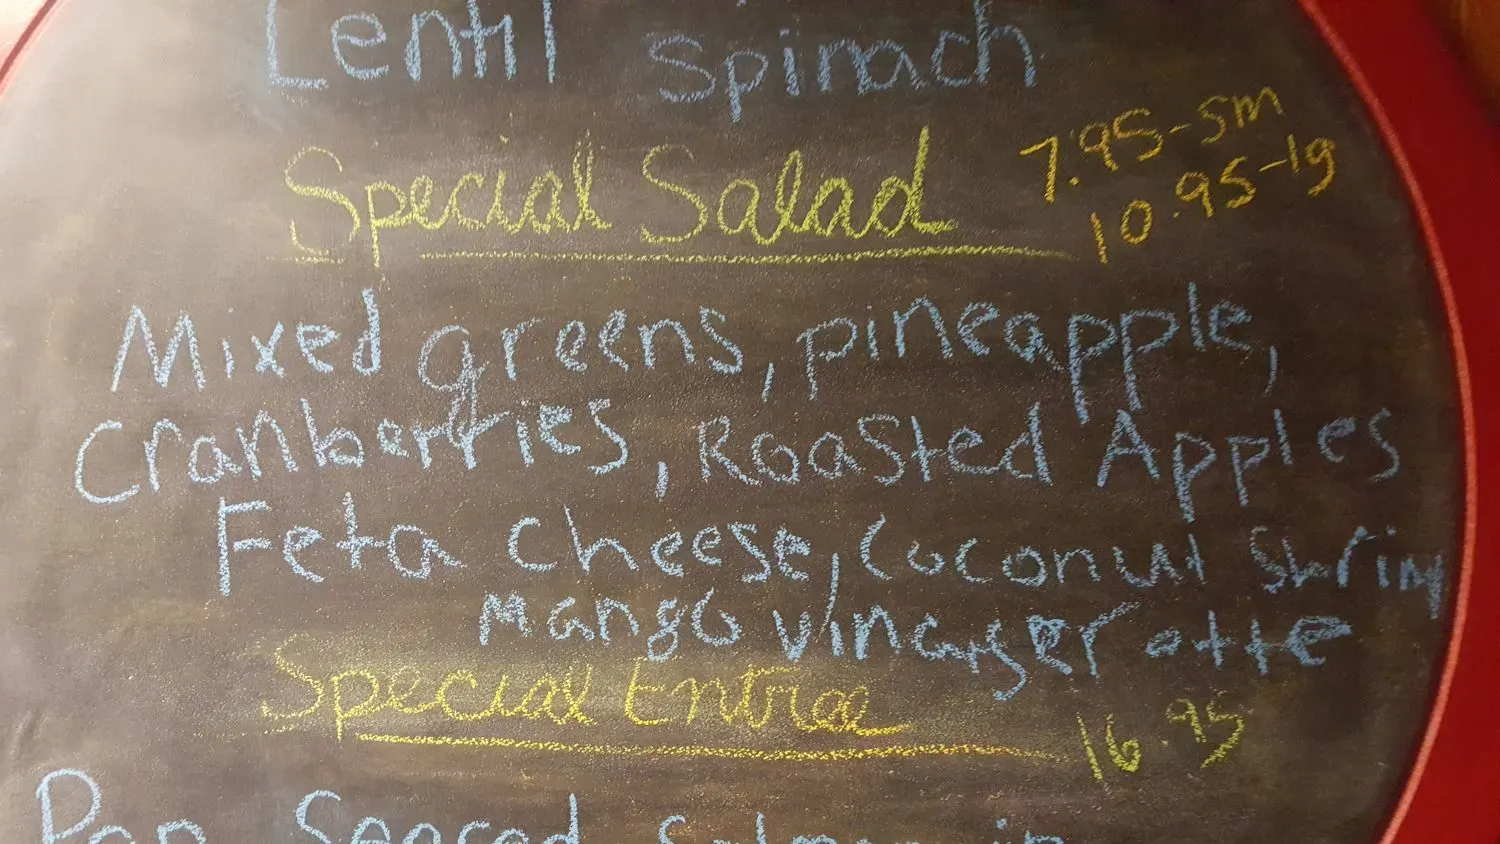 Lentil Spinach
Special Salad 7.95-sm
10.95-lg
Mixed greens, pineapple,
Cranberries, Roasted Apples
Feta Cheese, Coconut Shrimp
Mango Vinaigerotte
Special Entrae
16.95
Pan Seared Salmon in